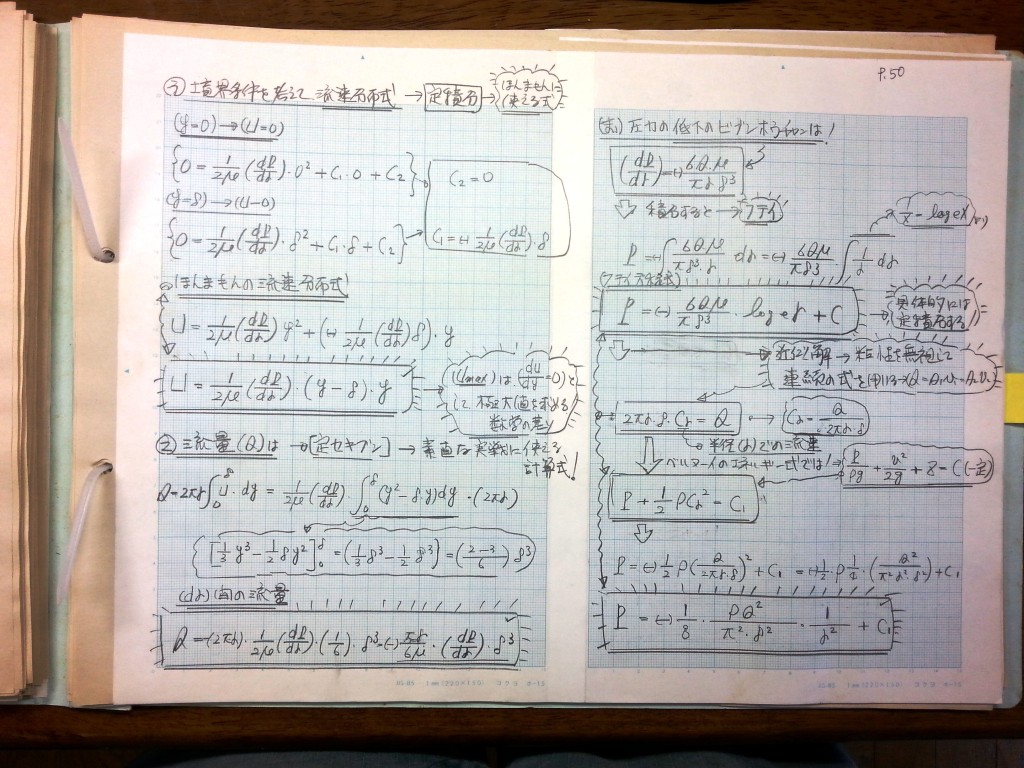 ① 境界条件を考えて、流速分布式 → 定積分 → ほんまもんに使える式
(y=0) → (U=0)
{0 = 1/2μ (dP/dr)・0² + C₁・0 + C₂}
C₂ = 0
(y=δ) → (U=0)
{0 = 1/2μ (dP/dr)・δ² + C₁・δ + C₂}
C₁ = (-) 1/2μ (dP/dr)・δ
ほんまもんの流速分布式
U = 1/2μ (dP/dr) y² + (-) 1/2μ (dP/dr) δ)・y
U = 1/2μ (dP/dr)・(y-δ)・y
(Umax)は、(du/dy=0)として極大値を求める数学の基
② 流量(Q)は → [定セキブン] → 素直な実戦に使える計算式!
Q = 2πr ∫₀^δ U・dy = 1/2μ (dP/dr)・∫₀^δ (y²-δ・y)dy・(2πr)
[1/3 y³ - 1/2 δy²]₀^δ = (1/3 δ³ - 1/2 δ³) = (2-3/6) δ³
(dr)間の流量
Q = (2πr)・1/2μ (dP/dr)・(1/6)・δ³ = (-) πr/6μ・(dP/dr)・δ³
P.50
圧力の低下のビブンホウテイシキは!
(dP/dr) = (-) 6Q・μ/πr δ³
積分すると →
1/x = log eX
P = (-) ∫ 6Qμ/πδ³・r dr = (-) 6Qμ/πδ³ ∫ 1/r dr
P = (-) 6Qμ/πδ³・log er + C
具体的には定積分する
近似解 → 粘性を無視して
連続の式を
2πr・δ・Cr = Q → Cr = Q/2πr・δ
半径(r)での流速
ベルヌーイのエネルギー式では! → P/ρg + v²/2g + Z = C(一定)
P + 1/2 ρCr² = C₁
P = (-) 1/2 ρ (Q/2πr・δ)² + C₁ = (-) 1/2 ρ 1/4・(Q²/π²・r²・δ²) + C₁
P = (-) 1/8・ρQ²/π²・δ²・1/r² + C₁